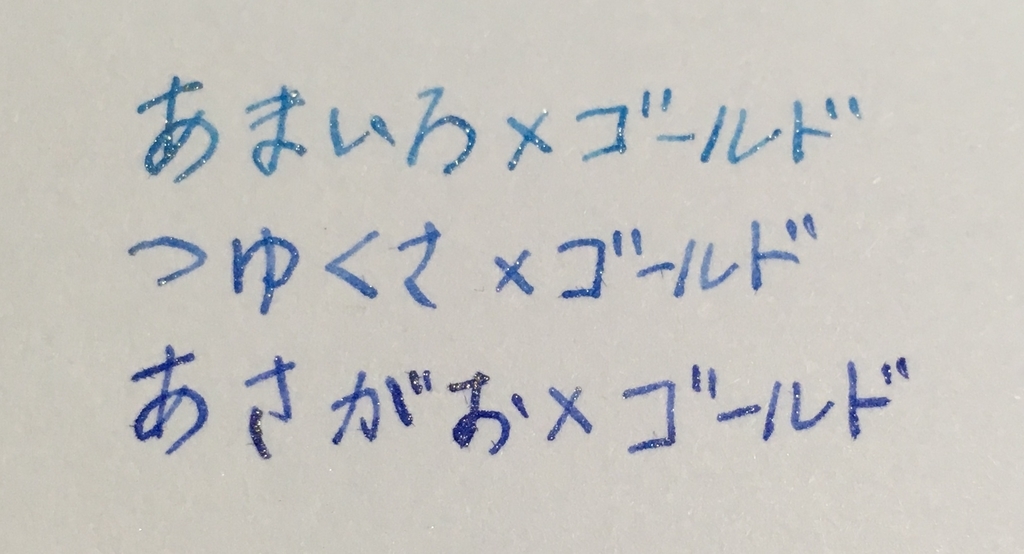 あまいろ×ゴールド
つゆくさ×ゴールド
あさがお×ゴールド